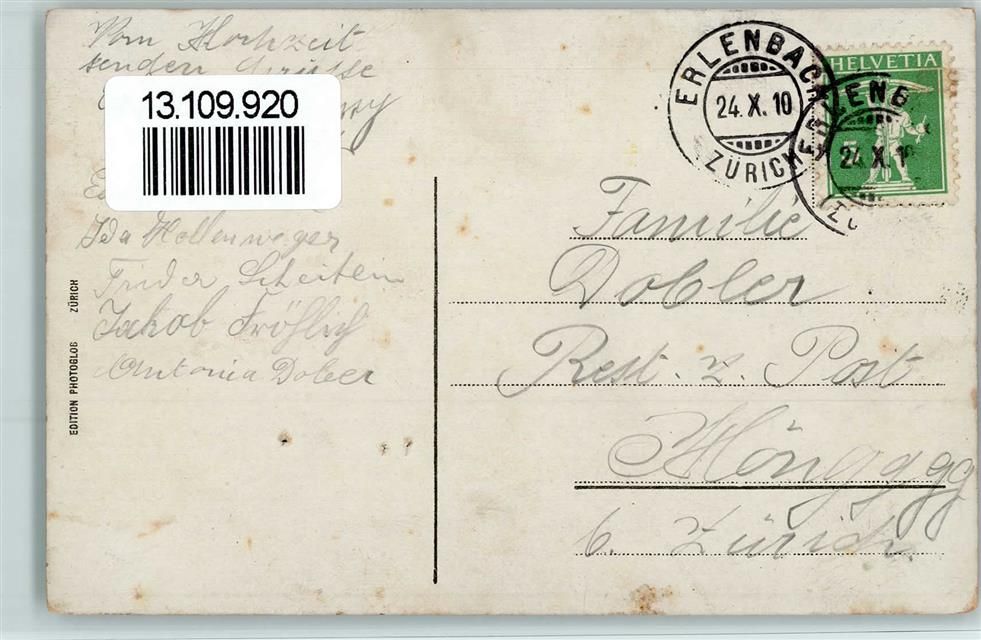 Vom Hochzeit
senden Grüsse
13.109.920
Ida Hollenweger
Frieda Scheitlin
Jakob Fröhlich
Antonia Dober
EDITION PHOTOGLOB ZÜRICH
ERLENBACH
24.X.10
ZÜRICH
HELVETIA
5
24.X.1
Familie
Dobler
Rest. z. Post
Höngg gg
b. Zürich